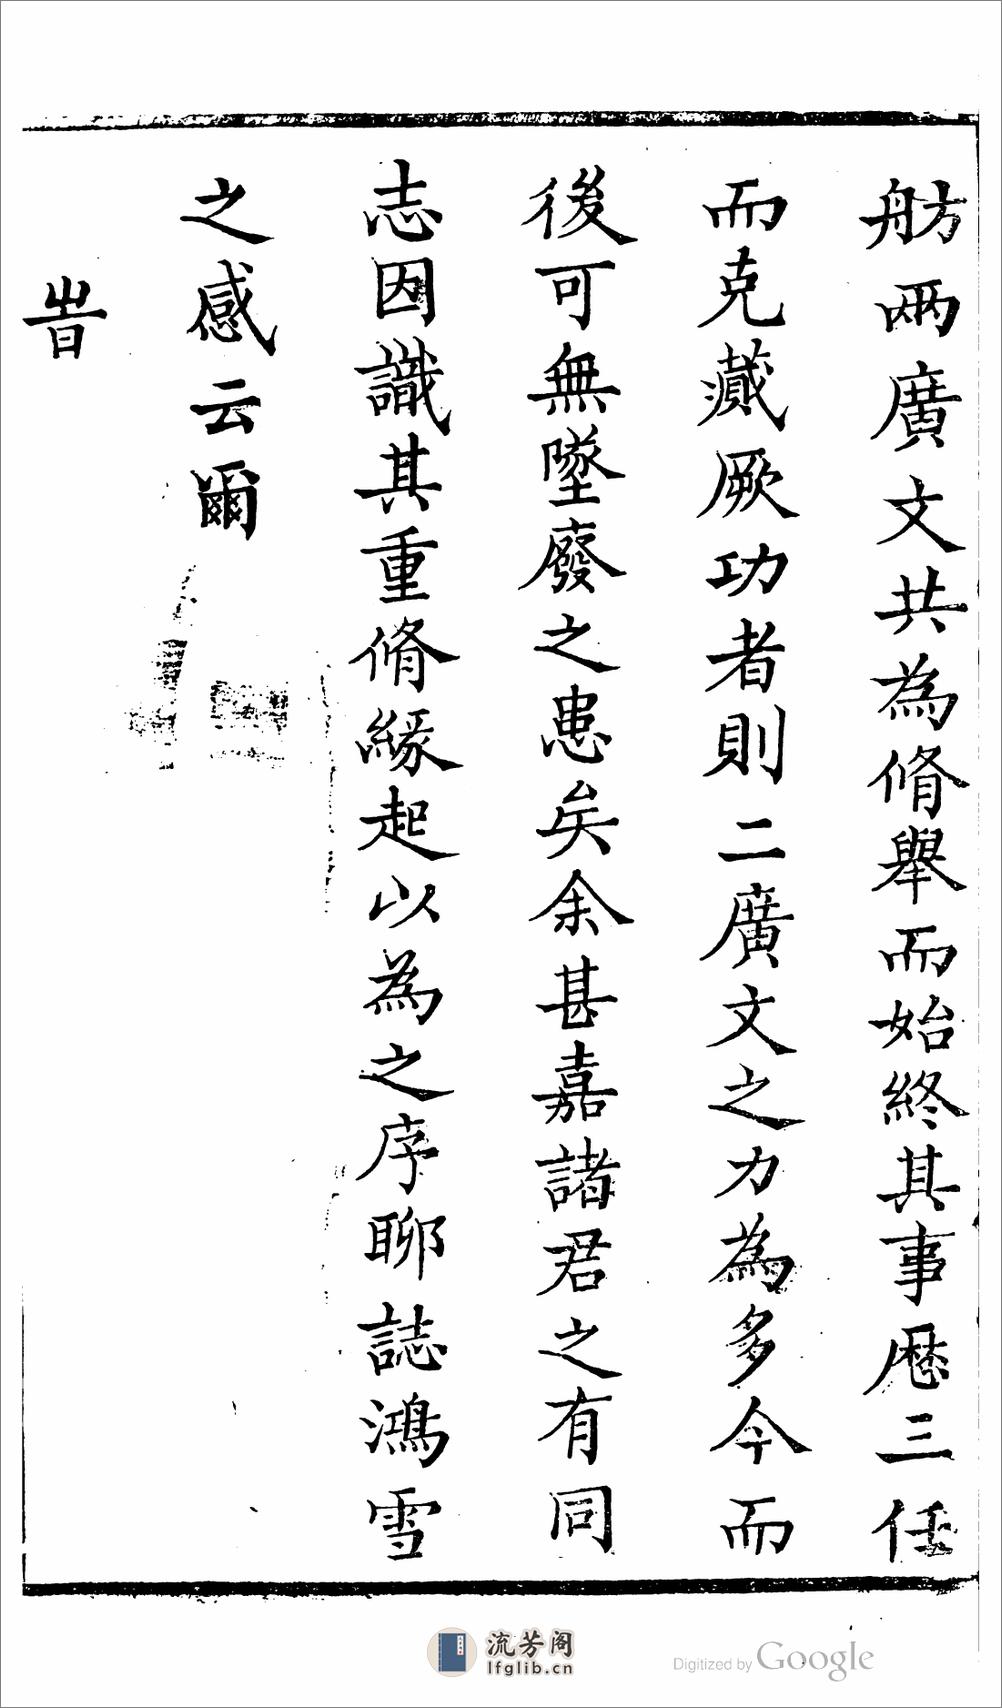 舫兩廣文共為脩舉而始終其事厯三任
而克蕆厥功者則二廣文之力為多今而
後可無墜廢之患矣余甚嘉諸君之有同
志因識其重脩緣起以為之序聊誌鴻雪
之感云爾
旹
流芳阁
lfglib.cn
Digitized by Google